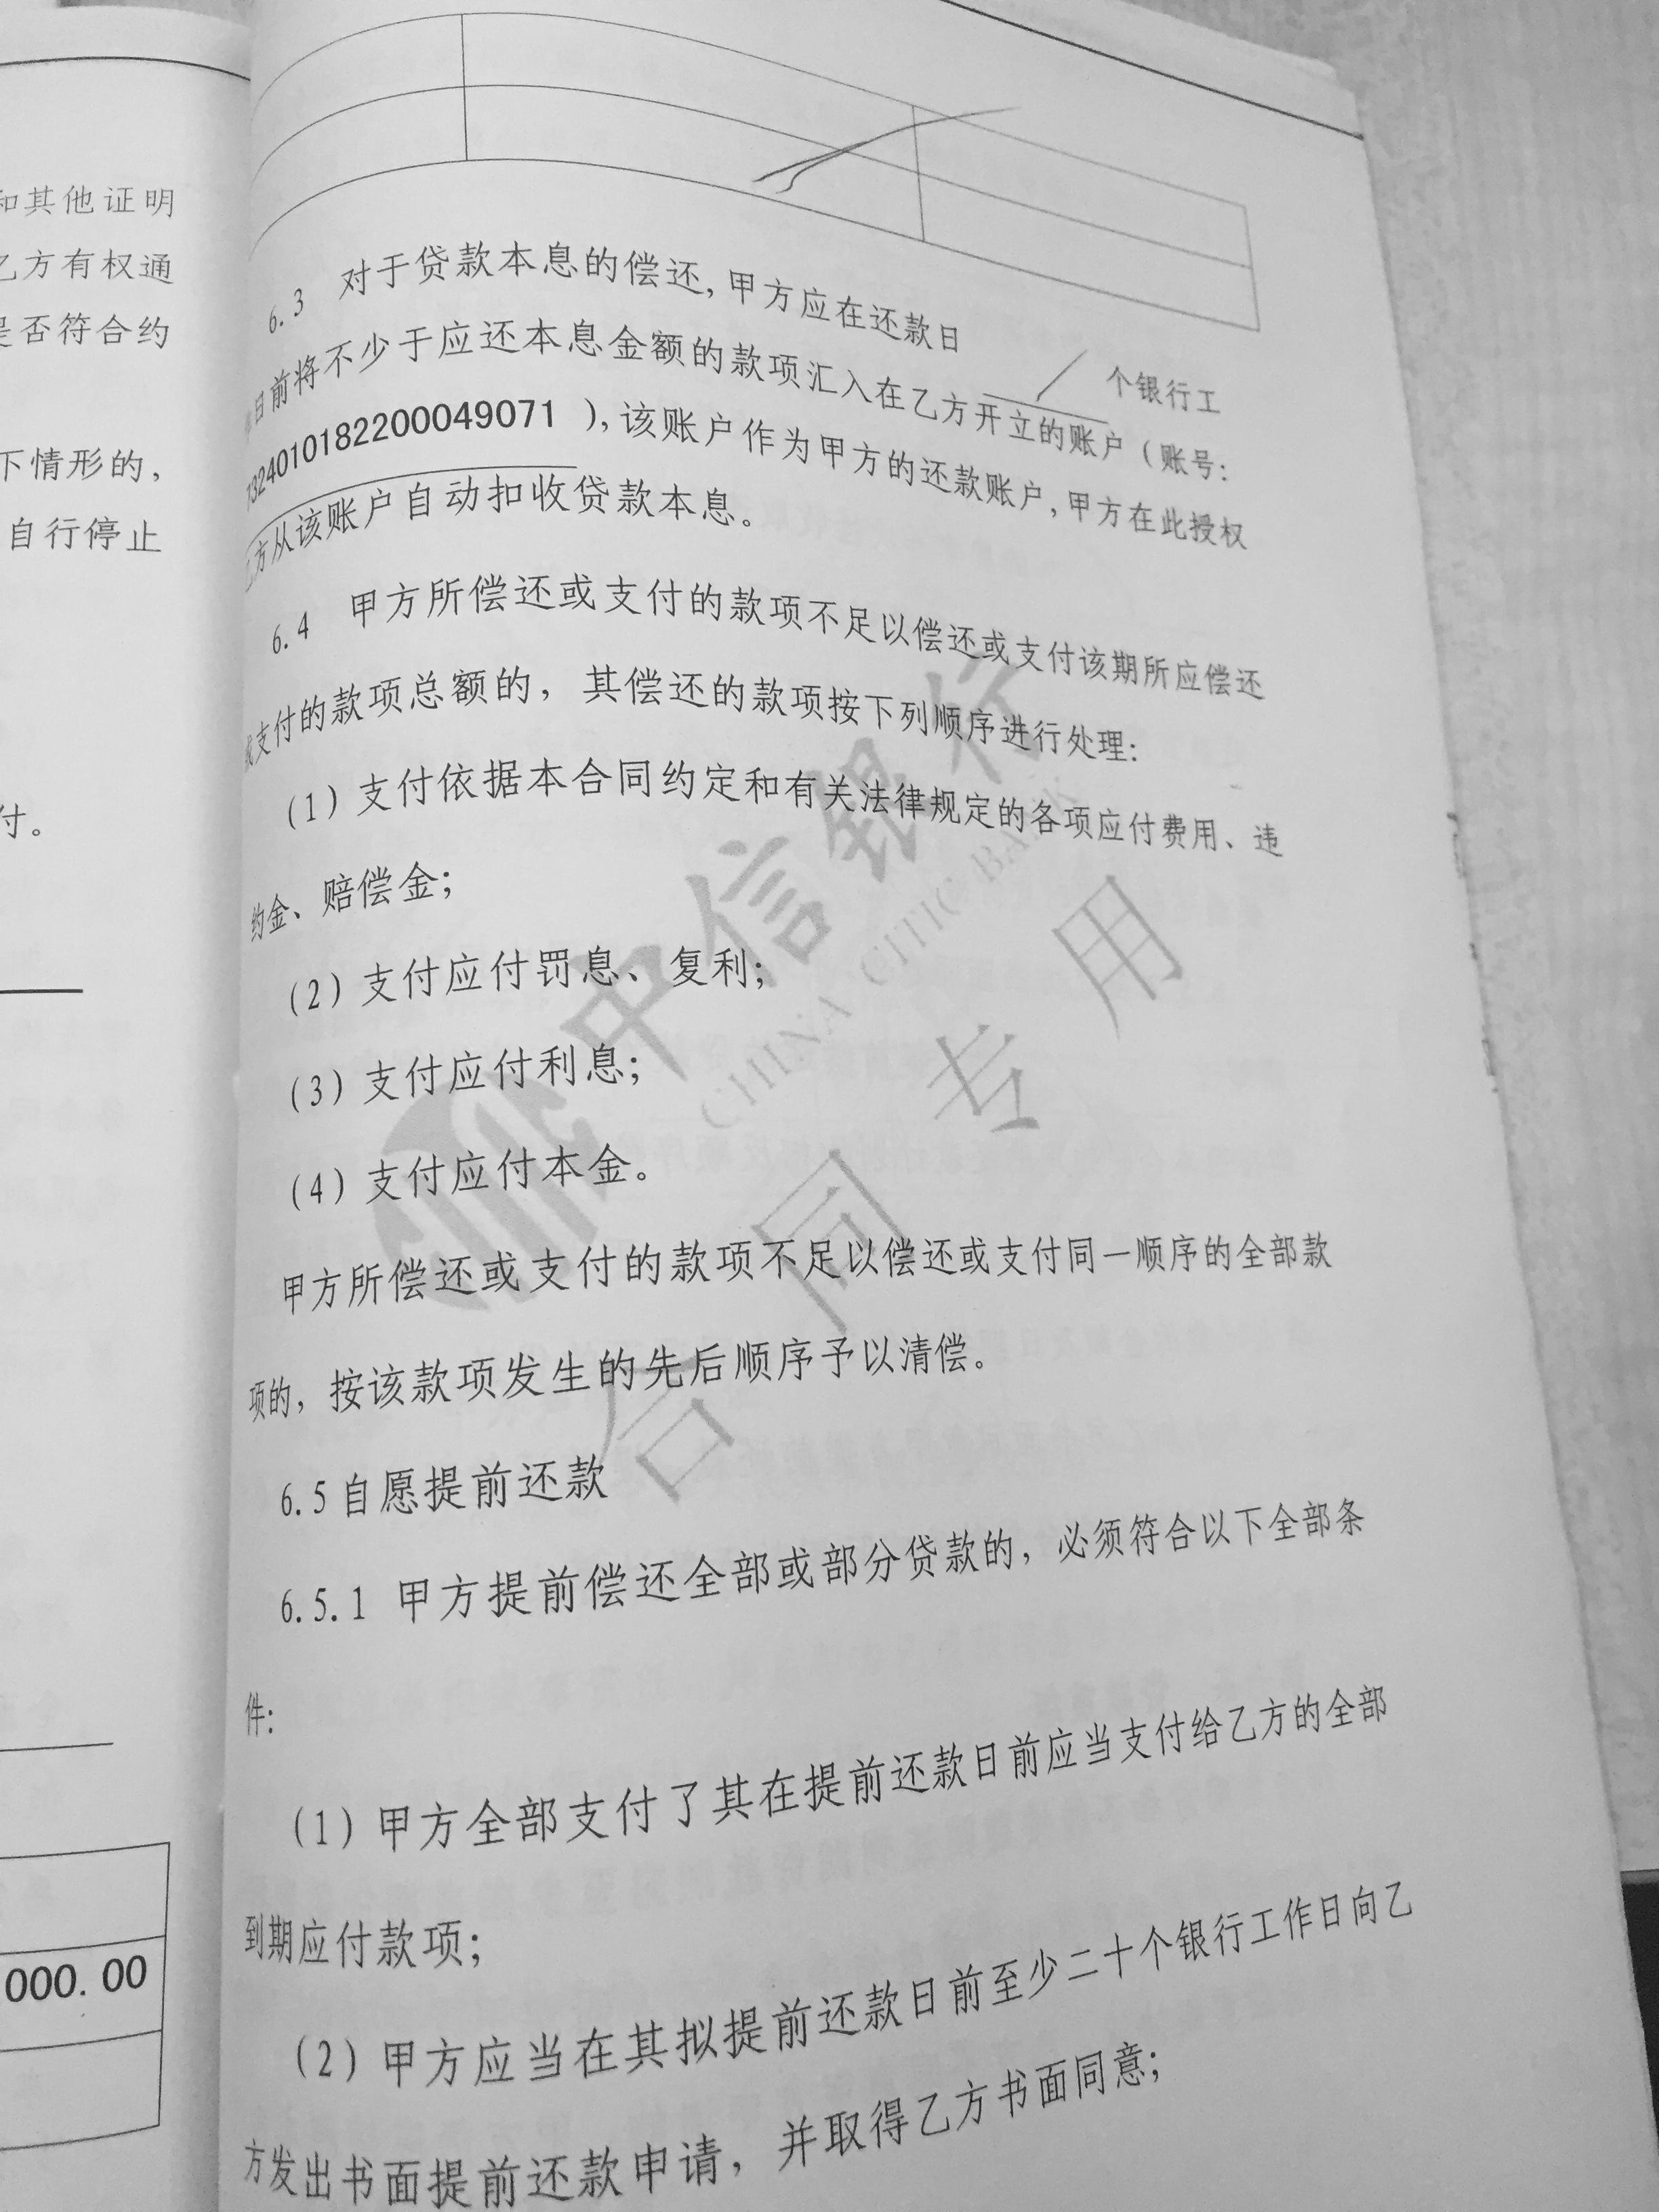 和其他证明
乙方有权通
是否符合约
下情形的，
自行停止
付。
000.00
6.3 对于贷款本息的偿还，甲方应在还款日 / 个银行工
日前将不少于应还本息金额的款项汇入在乙方开立的账户（账号：
7324010182200049071 ），该账户作为甲方的还款账户，甲方在此授权
乙方从该账户自动扣收贷款本息。
6.4 甲方所偿还或支付的款项不足以偿还或支付该期所应偿还
或支付的款项总额的，其偿还的款项按下列顺序进行处理：
（1）支付依据本合同约定和有关法律规定的各项应付费用、违
约金、赔偿金；
（2）支付应付罚息、复利；
（3）支付应付利息；
（4）支付应付本金。
甲方所偿还或支付的款项不足以偿还或支付同一顺序的全部款
项的，按该款项发生的先后顺序予以清偿。
6.5 自愿提前还款
6.5.1 甲方提前偿还全部或部分贷款的，必须符合以下全部条
件：
（1）甲方全部支付了其在提前还款日前应当支付给乙方的全部
到期应付款项；
（2）甲方应当在其拟提前还款日前至少二十个银行工作日向乙
方发出书面提前还款申请，并取得乙方书面同意；
中信银行
CHINA CITIC BANK
合同专用